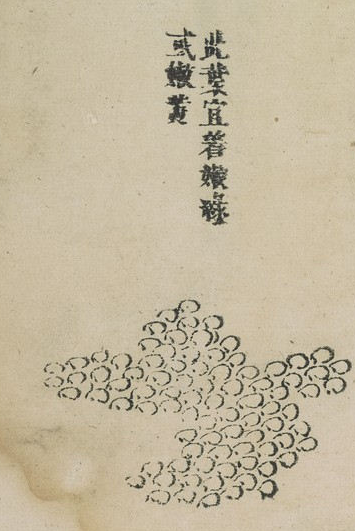 此葉宜着嫩綠
或嫩黃